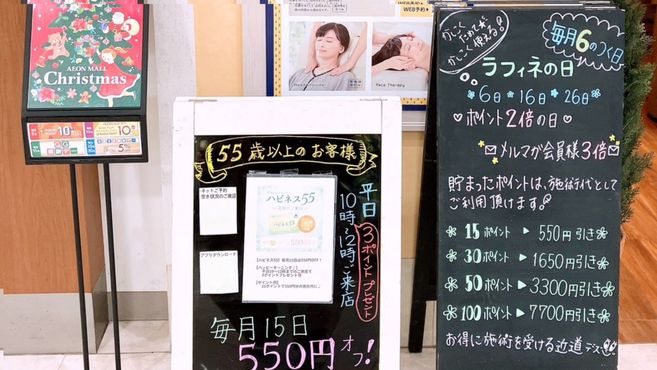 AEON MALL
Christmas
WEB予約
Face Therapy
55歳以上のお客様
ネットご予約
空き状況のご確認
アプリダウンロード
ハピネス55
平日
10時〜12時ご来店
3ポイントプレゼント
毎月15日
550円オフ!
かしこくためて
かしこく使える!
毎月6のつく日
ラフィネの日
6日 16日 26日
ポイント2倍の日
メルマガ会員様3倍
貯まったポイントは、施術代として
ご利用頂けます。
15ポイント→550円引き
30ポイント→1650円引き
50ポイント→3300円引き
100ポイント→7700円引き
お得に施術を受ける近道デス